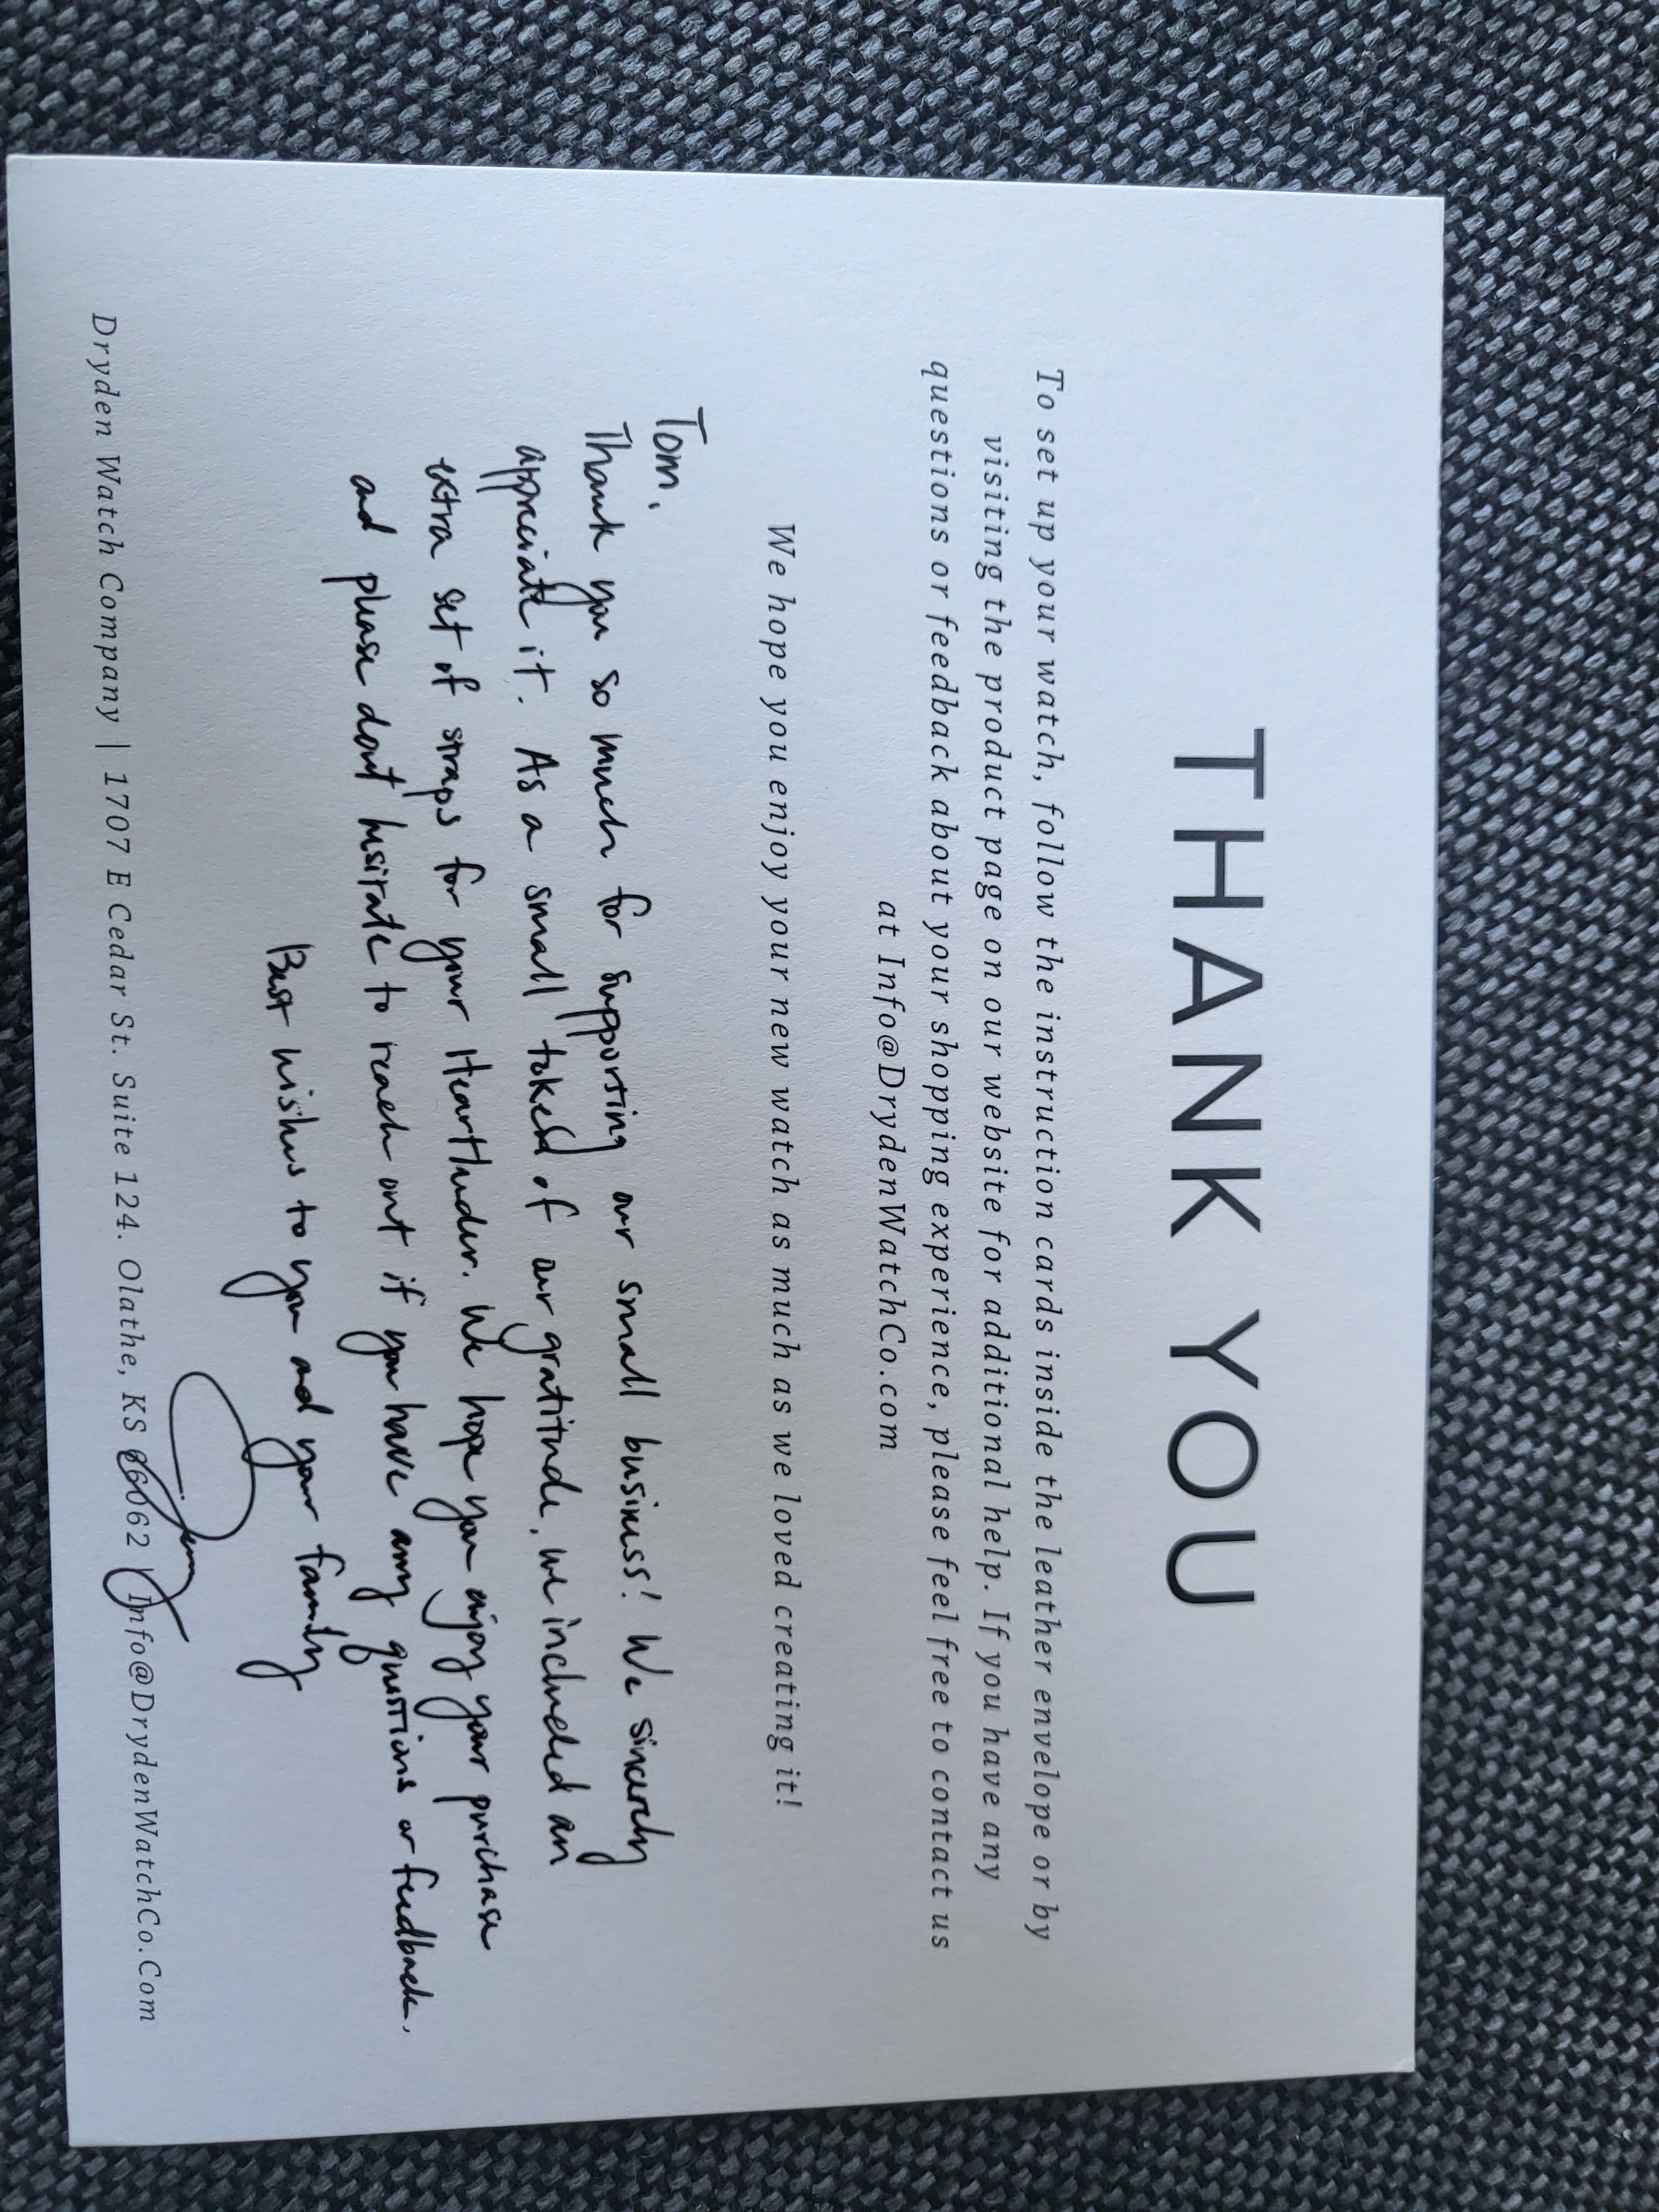 THANK YOU
To set up your watch, follow the instruction cards inside the leather envelope or by
visiting the product page on our website for additional help. If you have any
questions or feedback about your shopping experience, please feel free to contact us
at Info@DrydenWatchCo.com
We hope you enjoy your new watch as much as we loved creating it!
Tom,
Thank you so much for supporting our small business! We sincerely
appreciate it. As a small token of our gratitude, we included an
extra set of straps for your Heartlander. We hope you enjoy your purchase
and please dont hesitate to reach out if you have any questions or feedback.
Best wishes to you and your family
Dryden Watch Company | 1707 E Cedar St. Suite 124. Olathe, KS 66062 | Info@DrydenWatchCo.Com